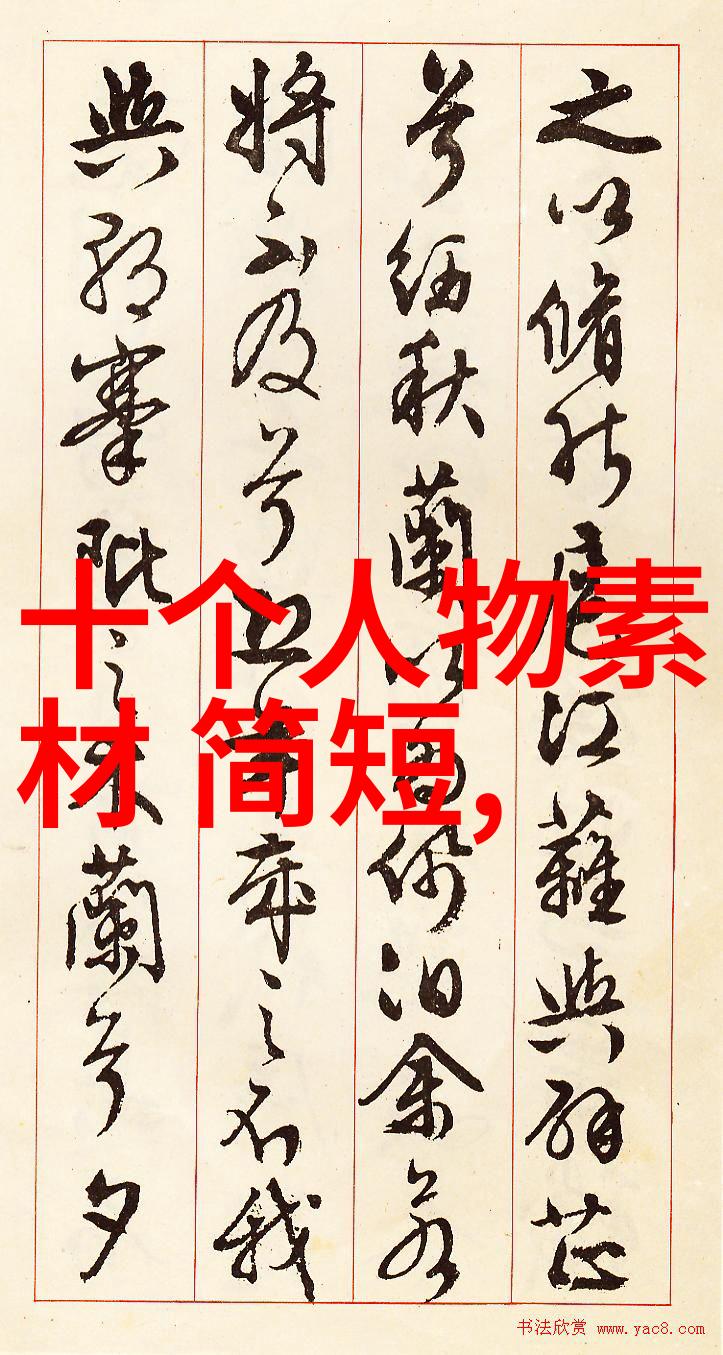 之以脩能扈江蘺與辟芷
兮紉秋蘭以為佩汩余若
將不及兮恐年歲之不我
與朝搴阰之木蘭兮夕
十个人物素
材 简短,
书法欣赏 www.yac8.com